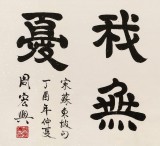 我無憂
宋蘇東坡句
丁酉年仲夏
周宏興